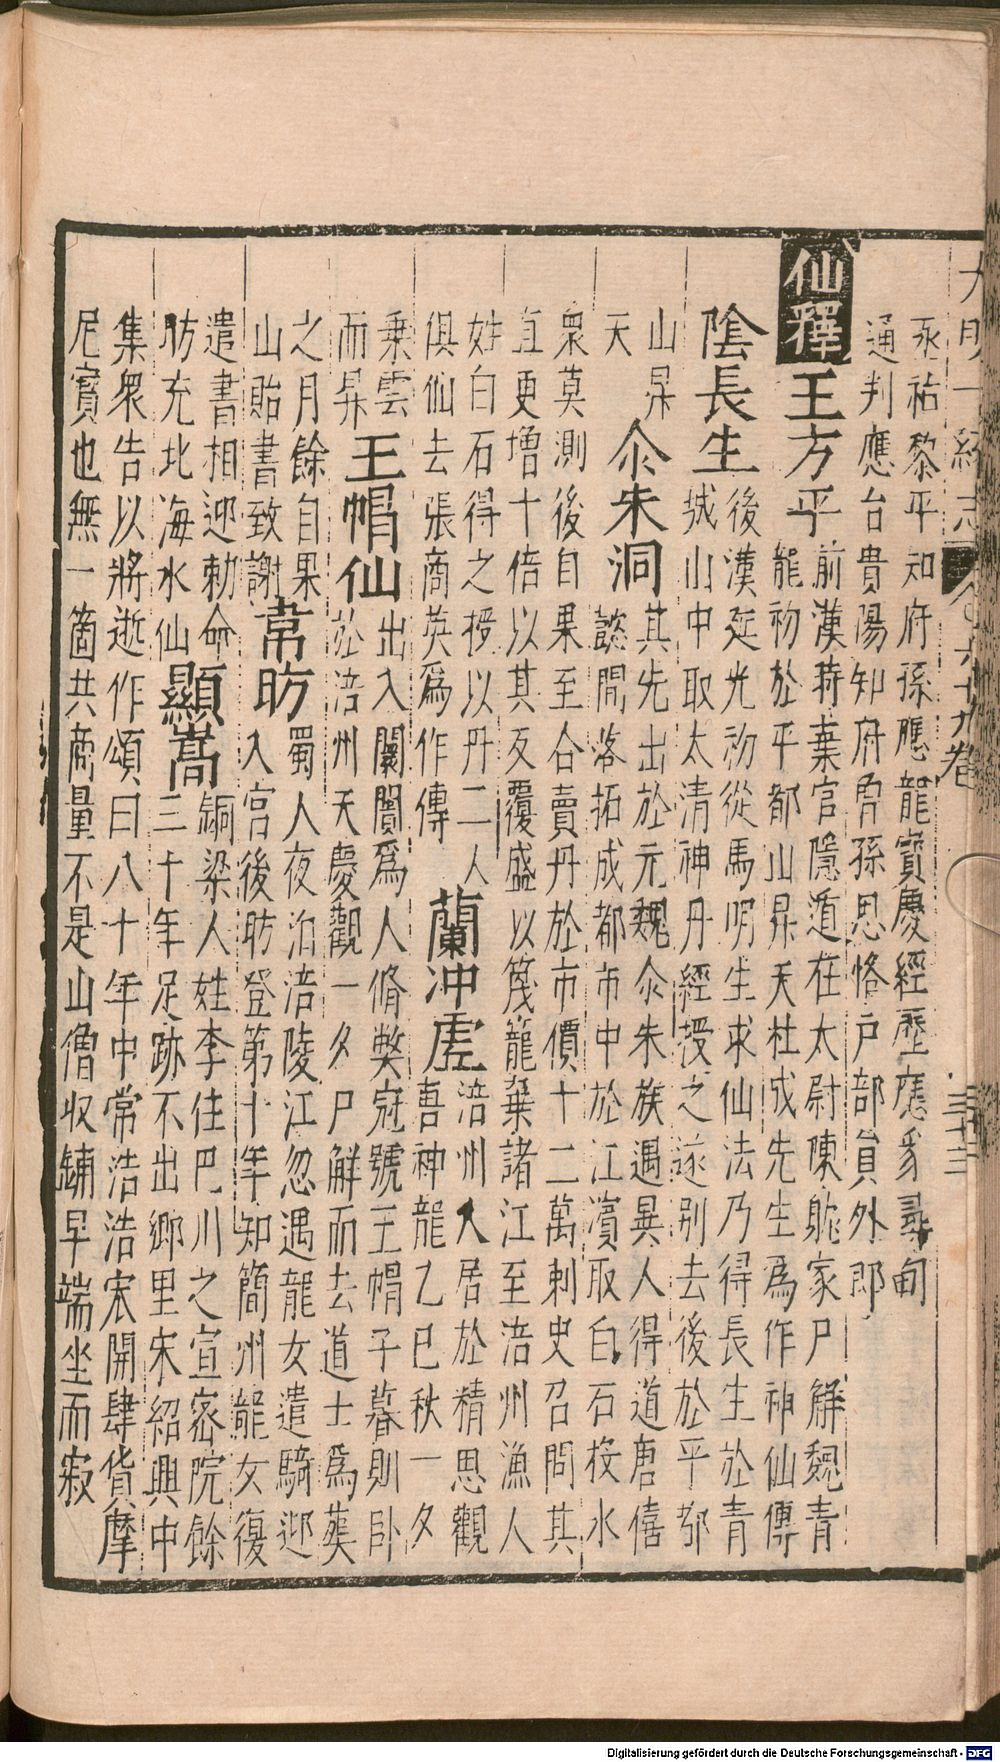 大明一統志 六十九卷 三十三
丞祐黎平知府孫應龍寶慶經歷應豸尋甸
通判應台貴陽知府胥孫思恪戶部員外郎
仙釋
王方平
前漢時棄官隱遁在太尉陳躭家尸解魏青
龍初於平都山昇天杜成先生爲作神仙傳
陰長生
後漢延光初從馬明生求仙法乃得長生於青
城山中取太清神丹經授之遂別去後於平都
山昇
天
尒朱洞
其先出於元魏尒朱族遇異人得道唐僖
懿間落拓成都市中於江濵取白石投水
衆莫測後自果至合賣丹於市價十二萬刺史召問其
直更增十倍以其反覆盛以篾籠棄諸江至涪州漁人
姓白石得之授以丹二人
俱仙去張商英爲作傳
蘭冲虛
涪州人居於精思觀
喜神龍乙巳秋一夕
乗雲
而昇
王帽仙
出入闤闠爲人脩獘冠號王帽子暮則卧
於涪州天慶觀一夕尸解而去道士爲葬
之月餘自果
山貽書致謝
韋昉
蜀人夜泊涪陵江忽遇龍女遣騎迎
入宮後昉登第十年知簡州龍女復
遣書相迎勅命
昉充北海水仙
顯嵩
銅梁人姓李住巴川之宣密院餘
三十年足跡不出鄉里宋紹興中
集衆告以將逝作頌曰八十年中常浩浩宋開肆貨摩
尼寶也無一箇共商量不是山僧收鋪早端坐而寂
Digitalisierung gefördert durch die Deutsche Forschungsgemeinschaft - DFG